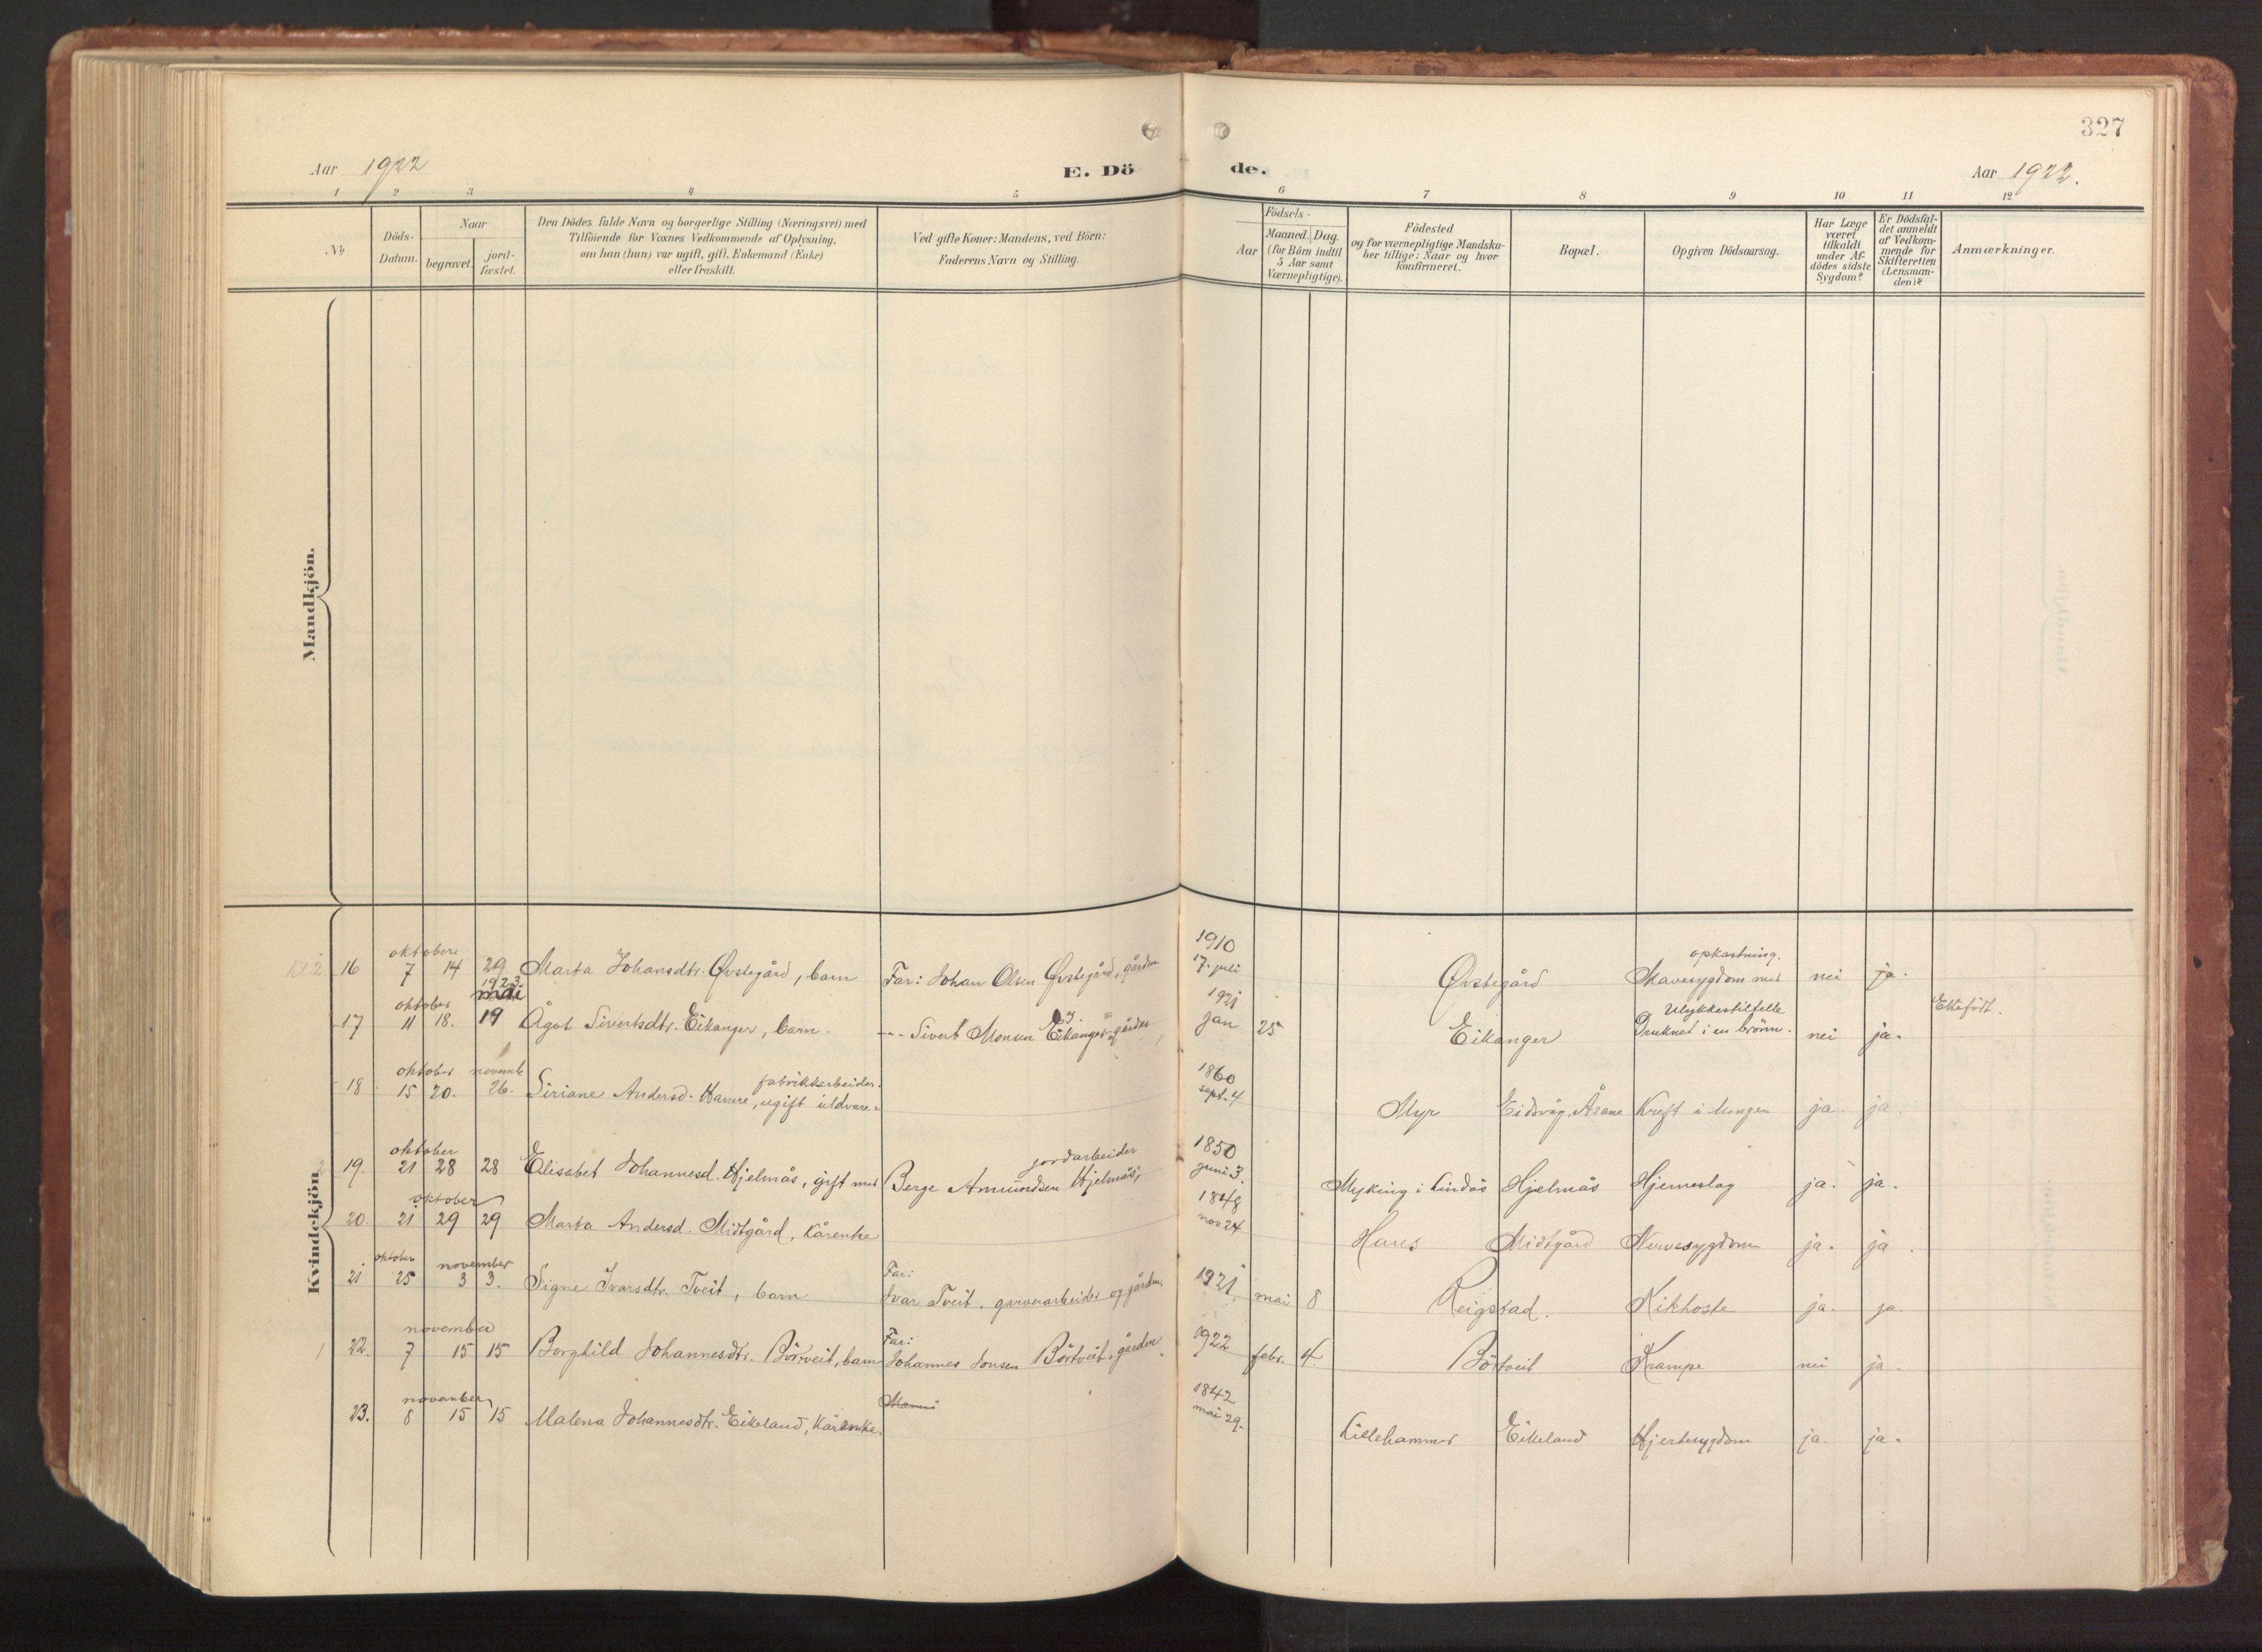 327
Aar 1922
E. Dö
de.
Aar 1922.
1 2 3 4 5 6 7 8 9 10 11 12
No
Döds-
Datum.
Naar
begravet.
jord-
fæstet.
Den Dödes fulde Navn og borgerlige Stilling (Næringsvei) med
Tilföiende for Voxnes Vedkommende af Oplysning,
om han (hun) var ugift, gift, Enkemand (Enke)
eller fraskilt.
Ved gifte Koner: Mandens, ved Börn:
Faderens Navn og Stilling.
Födsels-
Aar
Maaned. Dag.
(for Börn indtil
5 Aar samt
Værnepligtige).
Födested
og for værnepligtige Mandska-
ber tillige: Naar og hvor
Konfirmeret.
Bopæl.
Opgiven Dödsaarsag.
Har Læge
været
tilkaldt
under Af-
dödes sidste
Sygdom?
Er Dödsfal-
det anmeldt
af Vedkom-
mende for
Skifteretten
(Lensman-
den)?
Anmærkninger.
Mandkjön.
Kvindekjön.
oktober
1910
opkastning.
16 7 14 29 Marta Johansdtr. Øvstegård, barn Far: Johan Olsen Øvstegård, gårdm 17. juli Øvstegård Mavesygdom med nei ja.
1923
mai
oktober
1921
Ulykkestilfelle
Ektefödt.
17 11 18. 19 Ågot Sivertsdtr. Eikanger, barn. --- Sivert Monsen Eikanger, gårdm. jan 25 Eikanger Druknet i en brönn. nei ja.
oktober novemb
fabrikkarbeider.
1860
18 15 20. 26. Siriane Andersd. Hamre, ugift uldvare- sept. 4 Myr Eidsvåg, Åsane Kreft i lungen ja. ja
oktober
jordarbeider
1850
19. 21 28 28 Elisabet Johannesd. Hjelmås, gift med Berge Amundsen Hjelmås, juni 3. Myking i Lindås Hjelmås Hjerneslag ja. ja.
oktober
1848
20. 21 29 29 Marta Andersd. Midtgård, kårenke nov 24 Haus Midtgård Nervesygdom ja. ja.
oktober november
Far:
1921
21 25 3 3. Signe Ivarsdtr. Tveit, barn Ivar Tveit, garverarbeider og gårdm. mai 8 Reigstad. Kikhoste ja. ja.
november
Far:
1922
22. 7 15 15 Borghild Johannesdtr. Börtveit, barn Johannes Jonsen Börtveit, gårdm. febr. 4. Börtveit Krampe nei ja.
november
1842
23. 8 15 15 Malena Johannesdtr. Eikeland, Kårenke. mai 29. Lillehammer Eikeland Hjertesygdom ja. ja.